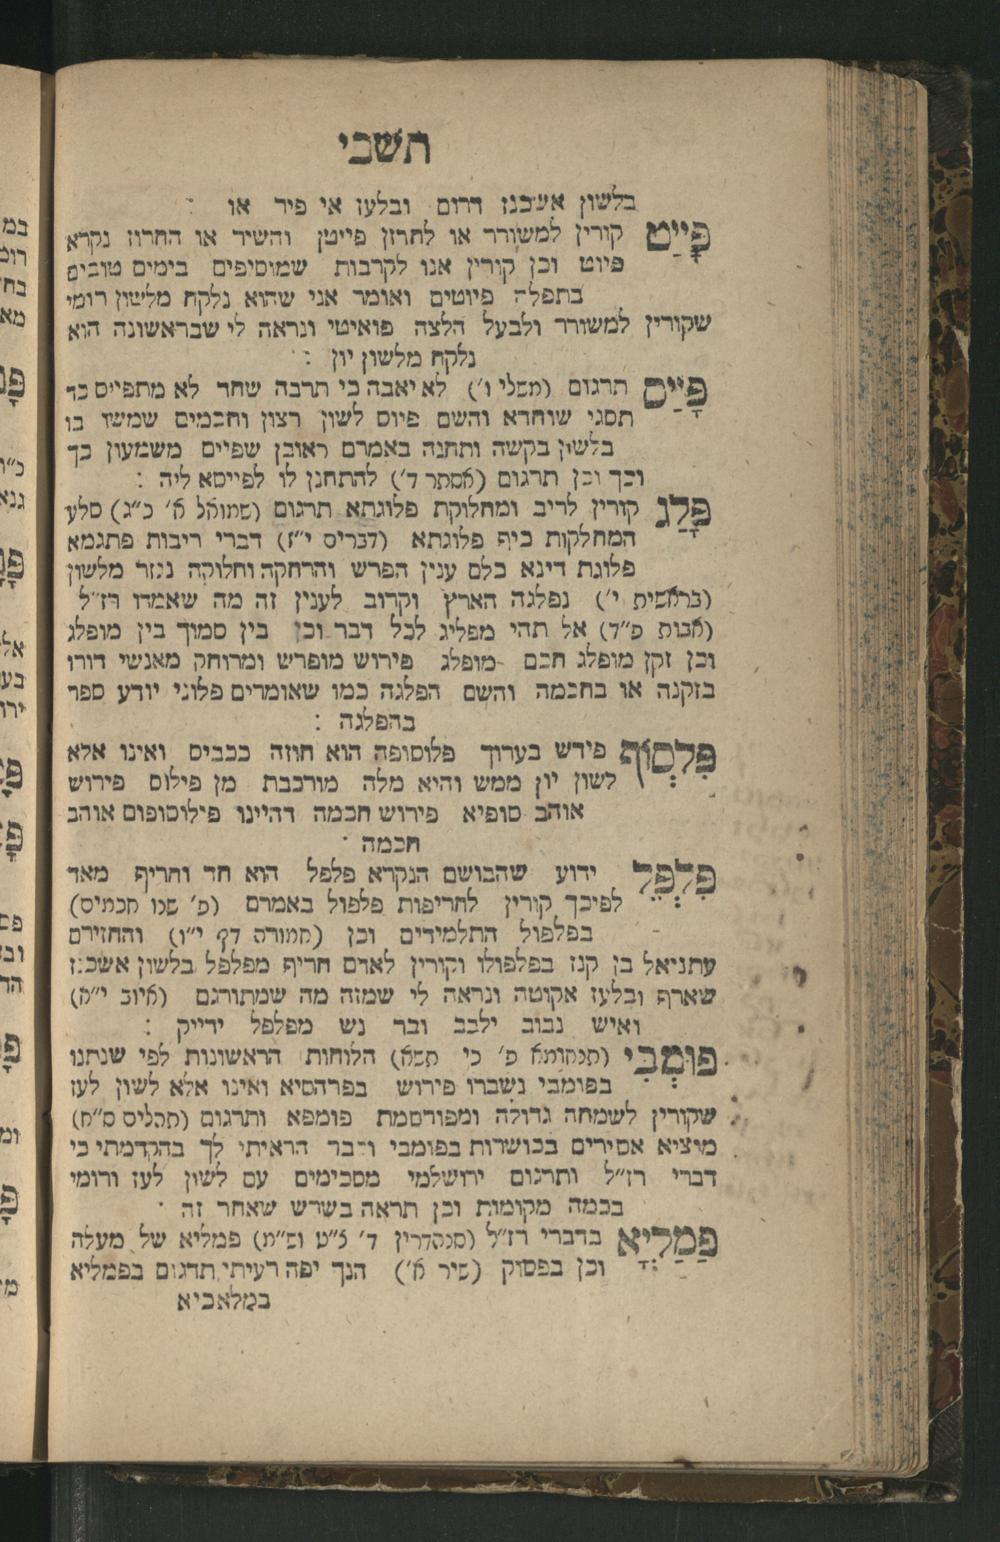 תשבי
בלשון אשכנז דרום ובלעז אי פיר או :
פָּיַיט קורין למשורר או לחרזן פייטן והשיר או החרוז נקרא
פיוט וכן קורין אנו לקרבות שמוסיפים בימים טובים
בתפלה פיוטים ואומר אני שהוא נלקח מלשון רומי
שקורין למשורר ולבעל הלצה פואיטי ונראה לי שבראשונה הוא
נלקח מלשון יון :
פָּיַיס תרגום (משלי ו') לא יאבה כי תרבה שחד לא מתפייס כד
תסגי שוחדא והשם פיוס לשון רצון וחכמים שמשו בו
בלשון בקשה ותחנה באמרם ראובן שפייס משמעון כך
וכך וכן תרגום (אסתר ד') להתחנן לו לפייסא ליה :
פָּלַג קורין לריב ומחלוקת פלוגתא תרגום (שמואל א' כ"ג) סלע
המחלקות כיף פלוגתא (דברים י"ז) דברי ריבות פתגמא
פלוגת דינא כלם ענין הפרש והרחקה וחלוקה נגזר מלשון
(בראשית י') נפלגה הארץ וקרוב לענין זה מה שאמרו רז"ל
(אבות פ"ד) אל תהי מפליג לכל דבר וכן בין סמוך בין מופלג
וכן זקן מופלג חכם מופלג פירוש מופרש ומרוחק מאנשי דורו
בזקנה או בחכמה והשם הפלגה כמו שאומרים פלוני יודע ספר
בהפלגה :
פִּלְסוֹף פירש בערוך פלוסופה הוא חוזה ככבים ואינו אלא
לשון יון ממש והיא מלה מורכבת מן פילוס פירוש
אוהב סופיא פירוש חכמה דהיינו פילוסופום אוהב
חכמה ·
פִּלְפֵּל ידוע שהבושם הנקרא פלפל הוא חד וחריף מאד
לפיכך קורין לחריפות פלפול באמרם (פ' שנו חכמים)
בפלפול התלמידים וכן (תמורה דף י"ו) והחזירם
עתניאל בן קנז בפלפולו וקורין לאדם חריף מפלפל בלשון אשכנז
שארף ובלעז אקוטה ונראה לי שמזה מה שמתורגם (איוב י"א)
ואיש נבוב ילבב ובר נש מפלפל ידייק :
פּוּמְבִּי (תנחומא פ' כי תשא) הלוחות הראשונות לפי שנתנו
בפומבי נשברו פירוש בפרהסיא ואינו אלא לשון לעז
שקורין לשמחה גדולה ומפורסמת פומפא ותרגום (תהלים ס"ח)
מוציא אסירים בכושרות בפומבי וכבר הראיתי לך בהקדמתי כי
דברי רז"ל ותרגום ירושלמי מסכימים עם לשון לעז ורומי
בכמה מקומות וכן תראה בשרש שאחר זה ·
פַּמַלְיָא בדברי רז"ל (סנהדרין ד' ל"ט וס"ח) פמליא של מעלה
וכן בפסוק (שיר א') הנך יפה רעיתי תרגום בפמליא
במלאכיא